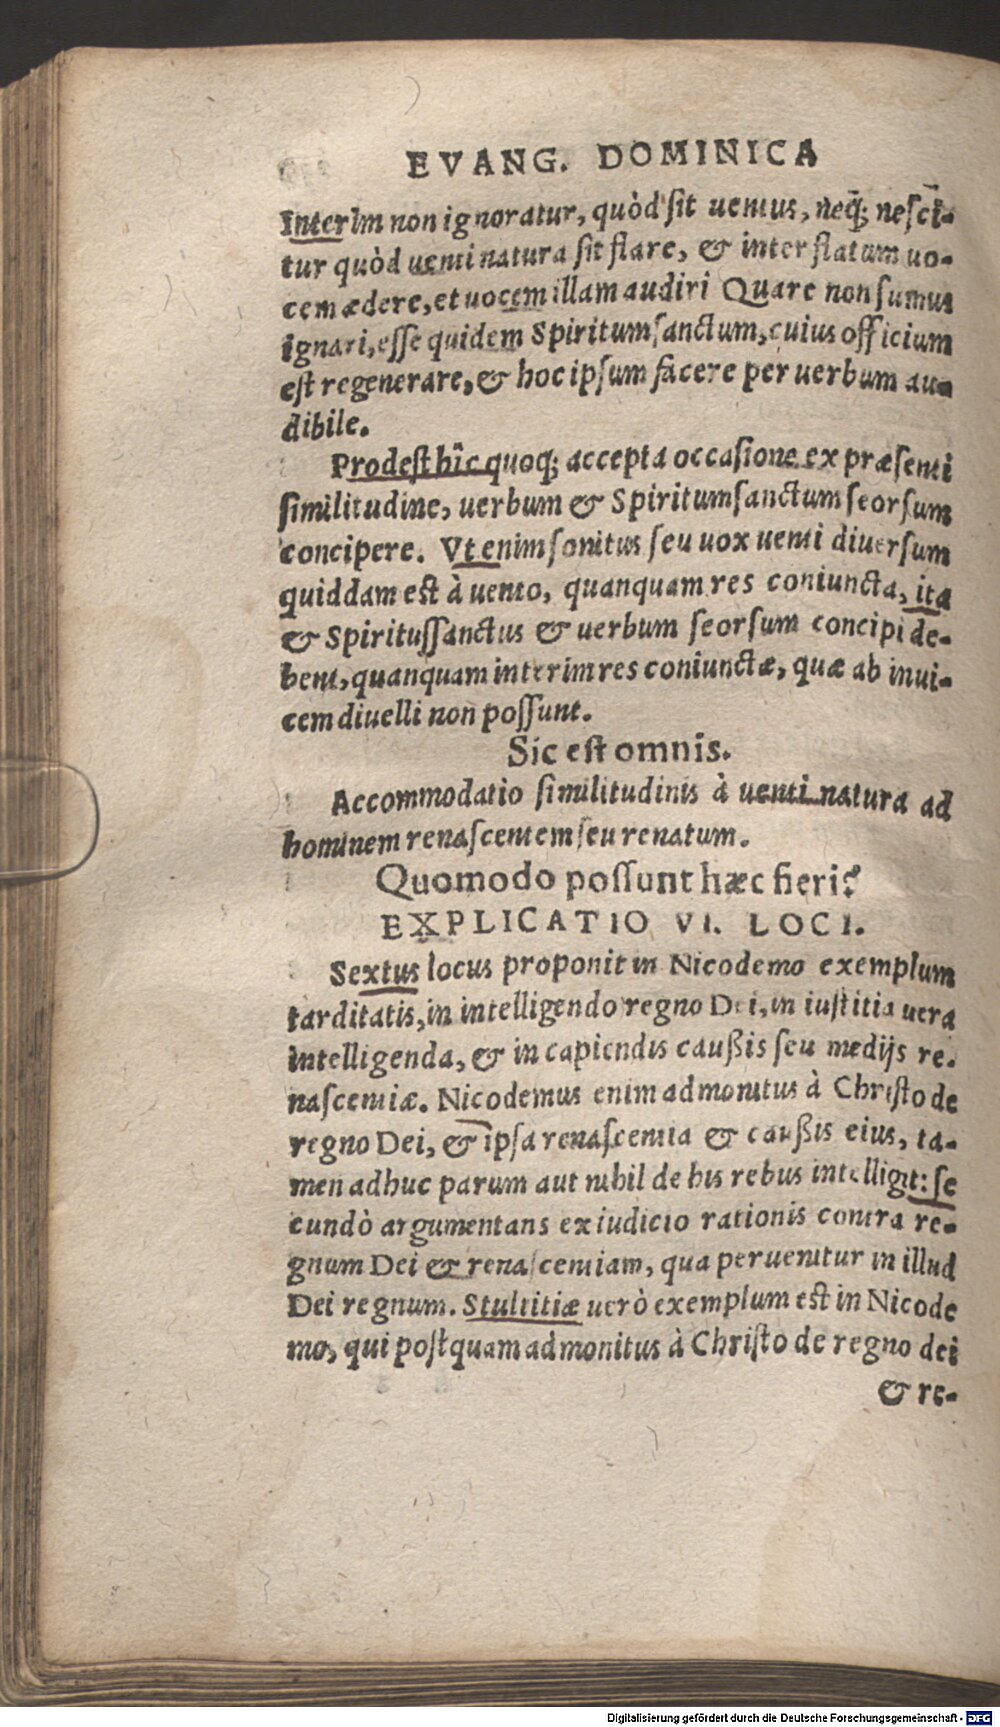 EVANG. DOMINICA
Interim non ignoratur, quòd sit uentus, neq́; nescĩ-
tur quòd uenti natura sit flare, & inter flatum uo-
cem ædere, et uocem illam audiri Quare non sumus
ignari, esse quidem Spiritum sanctum, cuius officium
est regenerare, & hoc ipsum facere per uerbum au-
dibile.
Prodest hîc quoq; accepta occasione ex præsenti
similitudine, uerbum & Spiritum sanctum seorsum
concipere. Vt enim sonitus seu uox uenti diuersum
quiddam est à uento, quanquam res coniuncta, ita
& Spiritussanctus & uerbum seorsum concipi de-
bent, quanquam interim res coniunctæ, quæ ab inui-
cem diuelli non possunt.
Sic est omnis.
Accommodatio similitudinis à uenti natura ad
hominem renascentem seu renatum.
Quomodo possunt hæc fieri?
EXPLICATIO VI. LOCI.
Sextus locus proponit in Nicodemo exemplum
tarditatis, in intelligendo regno Dei, in iustitia uera
intelligenda, & in capiendis caußis seu medijs re-
nascentiæ. Nicodemus enim admonitus à Christo de
regno Dei, & ipsa renascentia & caußis eius, ta-
men adhuc parum aut nihil de his rebus intelligit: se
cundò argumentans ex iudicio rationis contra re-
gnum Dei & renascentiam, qua peruenitur in illud
Dei regnum. Stultitiæ uerò exemplum est in Nicode
mo, qui postquam admonitus à Christo de regno dei
& re-
Digitalisierung gefördert durch die Deutsche Forschungsgemeinschaft - DFG